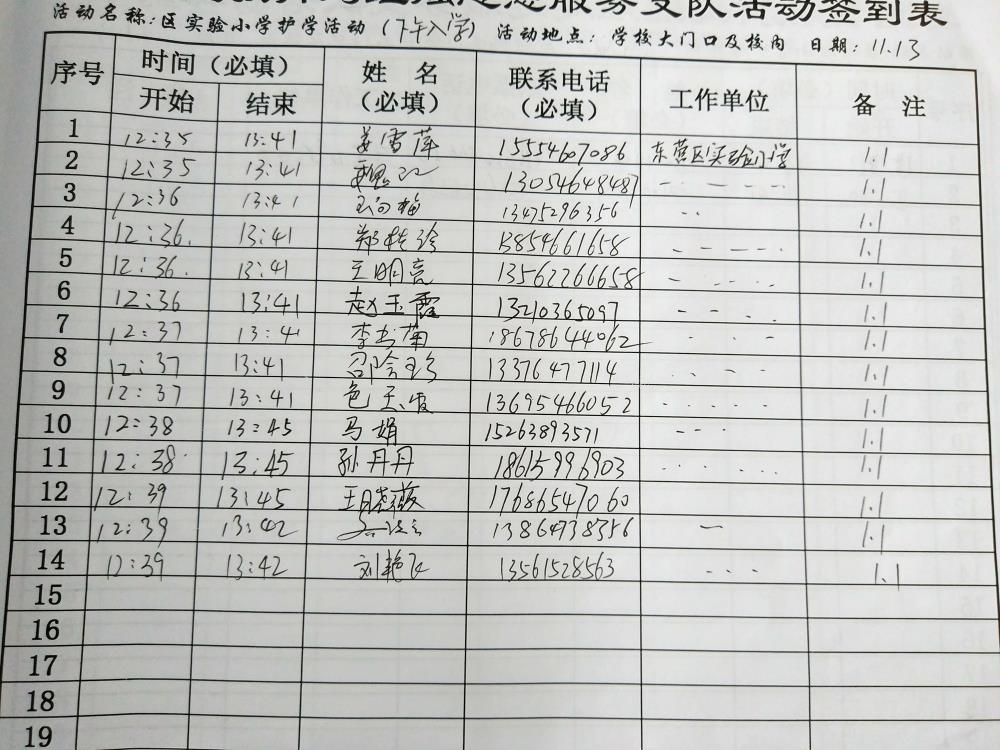 服务支队活动签到表
活动名称:区实验小学护学活动(下午入学) 活动地点:学校大门口及校内 日期:11.13
序号 时间(必填) 姓名(必填) 联系电话(必填) 工作单位 备注
开始 结束
1 12:35 13:41 姜雪萍 15554607086 东营区实验小学 1.1
2 12:35 13:41 13054648487 1.1
3 12:36 13:41 13475296356 1.1
4 12:36. 13:41 13854661658 1.1
5 12:36. 13:41 王明亮 13562266658 1.1
6 12:36 13:41 赵玉霞 13210365097 1.1
7 12:37 13:41 李书菊 18678644062 1.1
8 12:37 13:41 13376477114 1.1
9 12:37 13:41 13695466052 1.1
10 12:38 13:45 马娟 15263893571 1.1
11 12:38 13:45 孙丹丹 18615996903 1.1
12 12:39 13:45 17686547060 1.1
13 12:39 13:42 13864738356 1.1
14 12:39 13:42 13561528563 1.1
15
16
17
18
19